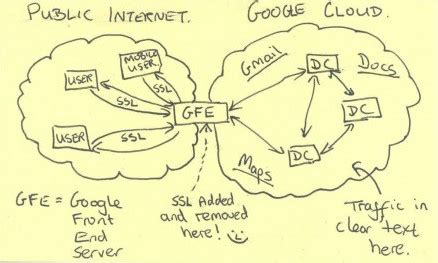 PUBLIC INTERNET.
GOOGLE CLOUD.
USER
MOBILE
USER
SSL
SSL
USER
SSL
GFE
Gmail
DC
Docs
DC
DC
Maps
GFE = Google
Front
End
Server
SSL Added
and removed
here!
Traffic in
clear text
here.